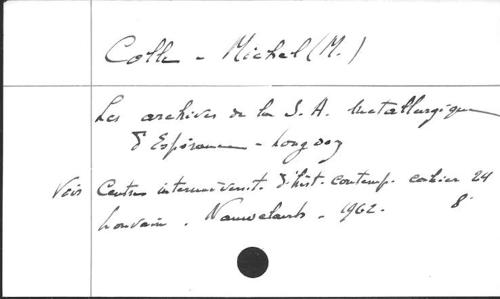 Colle - Michel (M.)
Les archives de la S. A. Métallurgique
d'Espérance - Longdoz
Voir Centre interuniversit. d'hist. contemp. cahier 24
Louvain. Nauwelaerts. 1962. 8°